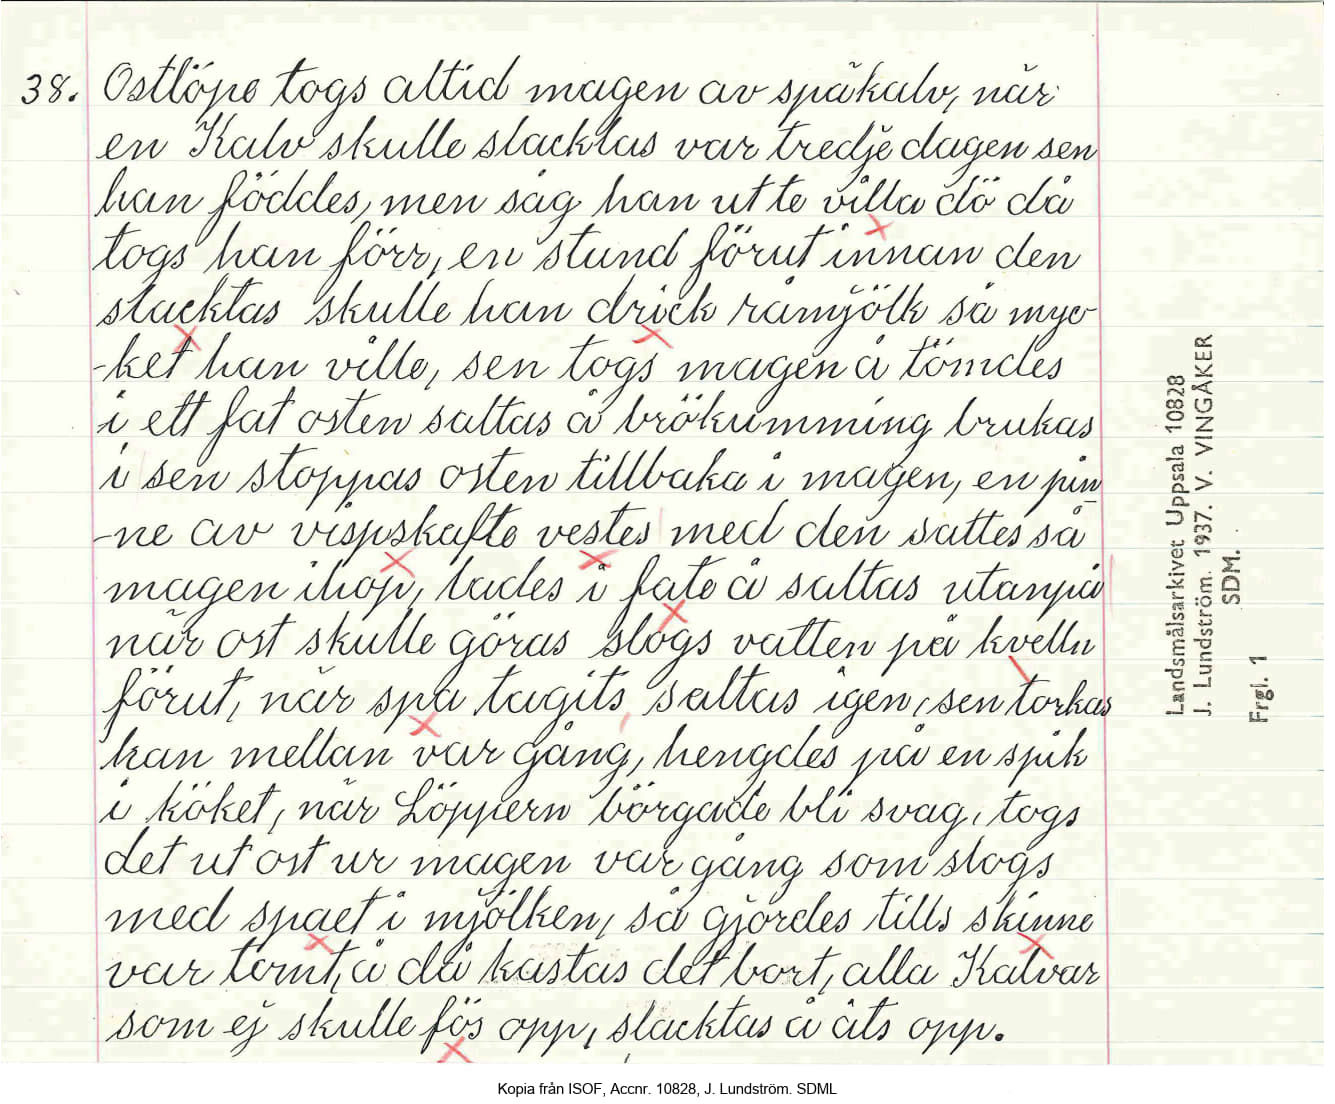 38. Ostlöpe togs altid magen av späkalv, när
en Kalv skulle slacktas var tredje dagen sen
han föddes, men såg han ut te villa dö då
togs han förr, en stund förut innan den
slacktas skulle han drick råmjölk så myc-
-ket han ville, sen togs magen å tömdes
i ett fat osten saltas å brökumming brukas
i sen stoppas osten tillbaka i magen, en pin
-ne av vispskafte vestes med den sattes så
magen ihop, lades i fate å saltas utanpå
når ost skulle göras slogs vatten på kvelln
förut, når spa tagits saltas igen, sen torkas
han mellan var gång, hengdes på en spik
i köket, når Löppern börgade bli svag, togs
det ut ost ur magen var gång som slogs
med spaet i mjölken, så gjordes tills skinne
var tömt, å då kastas det bort, alla Kalvar
som ej skulle fös opp, slacktas å åts opp.
Landsmålsarkivet Uppsala 10828
J. Lundström. 1937. V. VINGÅKER
SDM.
Frgl. 1
Kopia från ISOF, Accnr. 10828, J. Lundström. SDML